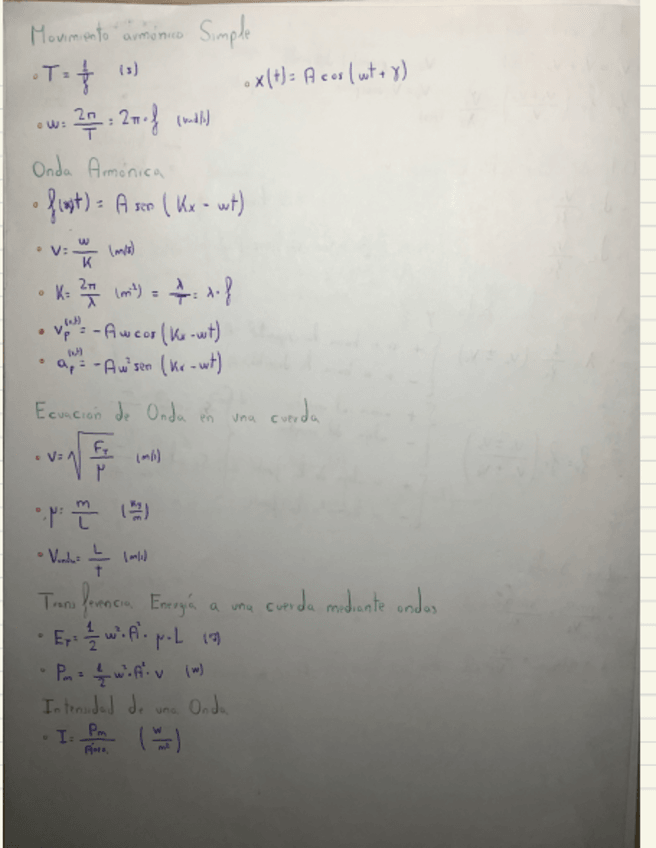 Movimiento armónico Simple
• T = 1/f (s) • x(t) = A cos (wt + γ)
• w = 2π/T = 2π·f (rad/s)
Onda Armónica
• f(x,t) = A sen (Kx - wt)
• v = w/K (m/s)
• K = 2π/λ (m⁻¹) = λ/T = λ·f
• vₚ⁽ˣ'ᵗ⁾ = -A w cos (Kx - wt)
• aₚ⁽ˣ'ᵗ⁾ = -A w² sen (Kx - wt)
Ecuación de Onda en una cuerda
• v = √(F_T/μ) (m/s)
• μ = m/L (Kg/m)
• Vonda = L/t (m/s)
Transferencia Energía a una cuerda mediante ondas
• E_T = 1/2 w²·A²·μ·L (J)
• Pm = 1/2 w²·A²·v (w)
Intensidad de una Onda
• I = Pm/Área (W/m²)